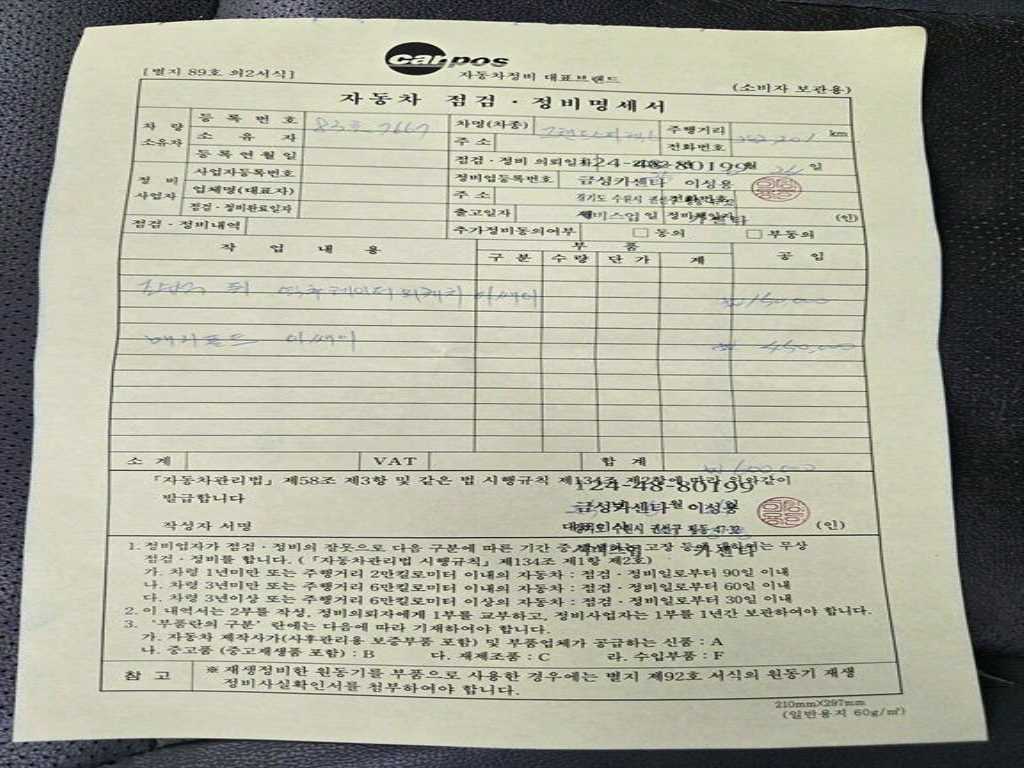 carpos
[별지 89호 의2서식]
자동차정비 대표브랜드
(소비자 보관용)
자동차 점검 · 정비명세서
차 량 소유자
등 록 번 호
차명(차종)
주행거리
km
소 유 자
주 소
전화번호
등록연월일
점검 · 정비 의뢰일자
124-48-80199
일
정 비 사업자
사업자등록번호
정비업등록번호
금성카센타 이성용
업체명(대표자)
주 소
경기도 수원시 권선구 평동 47-32
점검 · 정비완료일자
출고일자
서비스업
(인)
점검 · 정비내역
추가정비동의여부
□ 동의
□ 부동의
작 업 내 용
부 품
공 임
구 분
수 량
단 가
계
₩150,000
₩ 450,000
소 계
VAT
합 계
₩ 600,000
「자동차관리법」 제58조 제3항 및 같은 법 시행규칙 제134조 제2항에 따라 위와같이
발급합니다
124-48-80199
금성카센타 이성용
작성자 서명
경기도 수원시 권선구 평동 47-32
(인)
1. 정비업자가 점검 · 정비의 잘못으로 다음 구분에 따른 기간 중 고장 등 무상
점검 · 정비를 합니다. (「자동차관리법 시행규칙」 제134조 제1항 제2호)
가. 차령 1년미만 또는 주행거리 2만킬로미터 이내의 자동차 : 점검 · 정비일로부터 90일 이내
나. 차령 3년미만 또는 주행거리 6만킬로미터 이내의 자동차 : 점검 · 정비일로부터 60일 이내
다. 차령 3년이상 또는 주행거리 6만킬로미터 이상의 자동차 : 점검 · 정비일로부터 30일 이내
2. 이 내역서는 2부를 작성, 정비의뢰자에게 1부를 교부하고, 정비사업자는 1부를 1년간 보관하여야 합니다.
3. '부품란의 구분' 란에는 다음에 따라 기재하여야 합니다.
가. 자동차 제작사가(사후관리용 보증부품 포함) 및 부품업체가 공급하는 신품 : A
나. 중고품 (중고재생품 포함) : B 다. 재제조품 : C 라. 수입부품 : F
참 고
※ 재생정비한 원동기를 부품으로 사용한 경우에는 별지 제92호 서식의 원동기 재생
정비사실확인서를 첨부하여야 합니다.
210mm×297mm
(일반용지 60g/㎡)